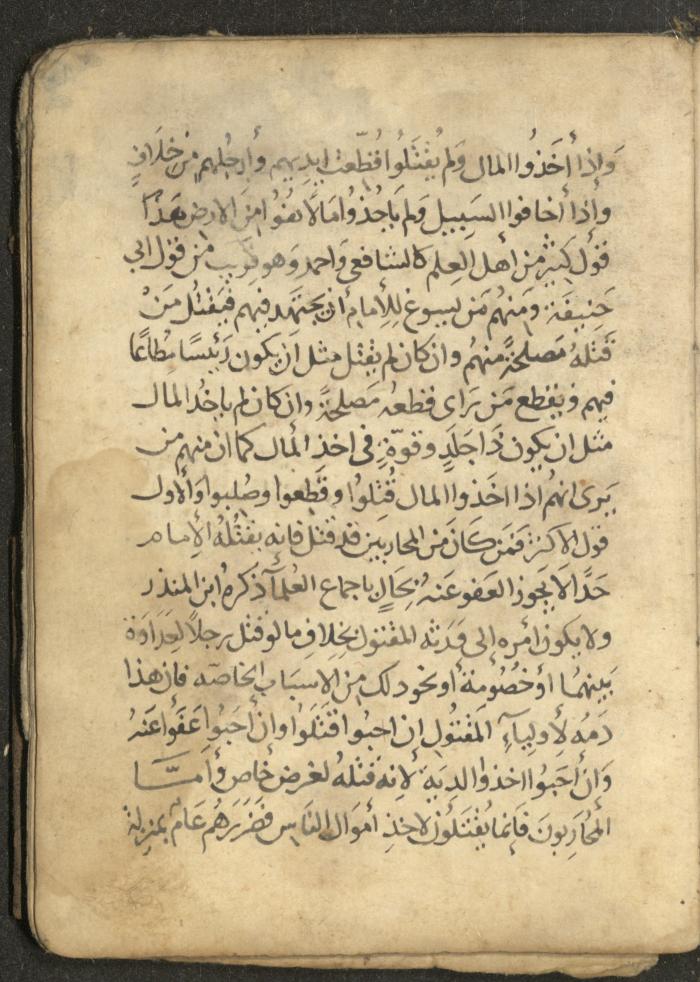 وَإذا أخَذُوا المال وَلم يُقْتَلُوا قُطّعت ايديهم وأرجُلهم من خلَافٍ
وأذا أخافوا السَبيل وَلم يَاخُذوُا مَالاً نُفُوا مِنَ الارض هَذا
قَول كثير من أهل العِلم كالشافعي وَاحمد وَهو قريب من قول ابي
حَنِيفَة وَمنهُم مَن يسوغ لِلإمام ان يجتهد فيهم فيَقتُل مَنْ
قَتْلهُ مَصلحةً منهُم وان كان لم يقتل مثل أن يكون رَئيسًا مُطاعًا
فيهم وَيقطع مَن رَاى قطعهُ مَصلحةً وان كان لم ياخُذ المال
مثل ان يكون ذَا جَلَدٍ وقوّةٍ في اخذ المال كما ان منهم من
يَرى انهُم اذا اخَذوا المال قُتِلُوا وقَطعوا وصُلبوا وَالأول
قول الاكثر فمَن كَان مَن المحاربين قد قتل فانه يقتُلهُ الإمام
حَدًّا لَا يَجوز العَفو عَنهُ بحَالٍ باجماع العُلمآء ذكرهُ ابن المنذر
ولا يكون امره إلى وَرَثه المقتول بخلافِ ما لو قتل رجلاً لعَدَاوَة
بَينهمُا أو خُصُومة أو نحو ذلك من الاسبَاب الخاصّه فان هذا
دَمُه لأوليآءِ المقتُول إن احبوا قَتَلوا وان أحَبوا عَفَوا عَنهُ
وَانْ أحَبوُا اخذوا الديَة لانهُ قَتْلهُ لغرض خَاص وأمّـا
المُحَاربُونَ فَإنما يُقتَلوُن لاخذِ أموَال الناس فَضَرَرهُم عَام بمنزلة